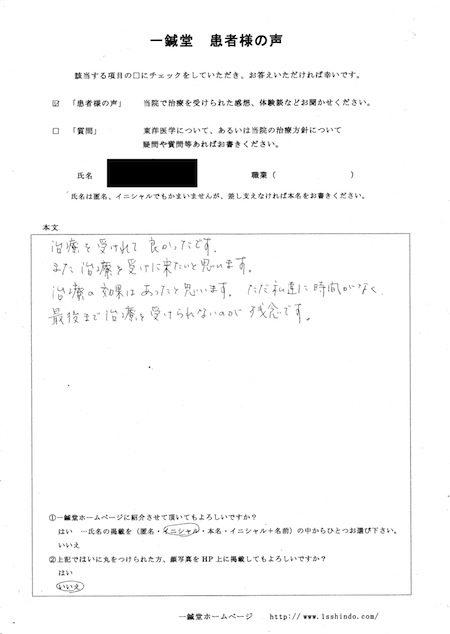 一鍼堂 患者様の声
該当する項目の□にチェックをしていただき、お答えいただければ幸いです。
☑ 「患者様の声」 当院で治療を受けられた感想、体験談などお聞かせください。
□ 「質問」 東洋医学について、あるいは当院の治療方針について
疑問や質問等あればお書きください。
氏名 職業（ ）
氏名は匿名、イニシャルでもかまいませんが、差し支えなければ本名をお書きください。
本文
治療を受けれて良かったです。
また治療を受けに来たいと思います。
治療の効果はあったと思います。ただ私達に時間がなく、
最後まで治療を受けられないのが残念です。
①一鍼堂ホームページに紹介させて頂いてもよろしいですか？
はい …氏名の掲載を（匿名・イニシャル・本名・イニシャル＋名前）の中からひとつお選び下さい。
いいえ
②上記ではいに丸をつけられた方、顔写真をHP上に掲載してもよろしいですか？
はい
いいえ
一鍼堂ホームページ http://www.1sshindo.com/